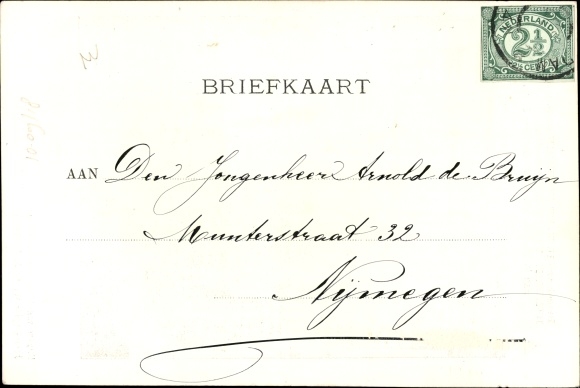 NEDERLAND
2½
CENT
BRIEFKAART
AAN Den Jongenheer Arnold de Bruijn
Munterstraat 32
Nijmegen